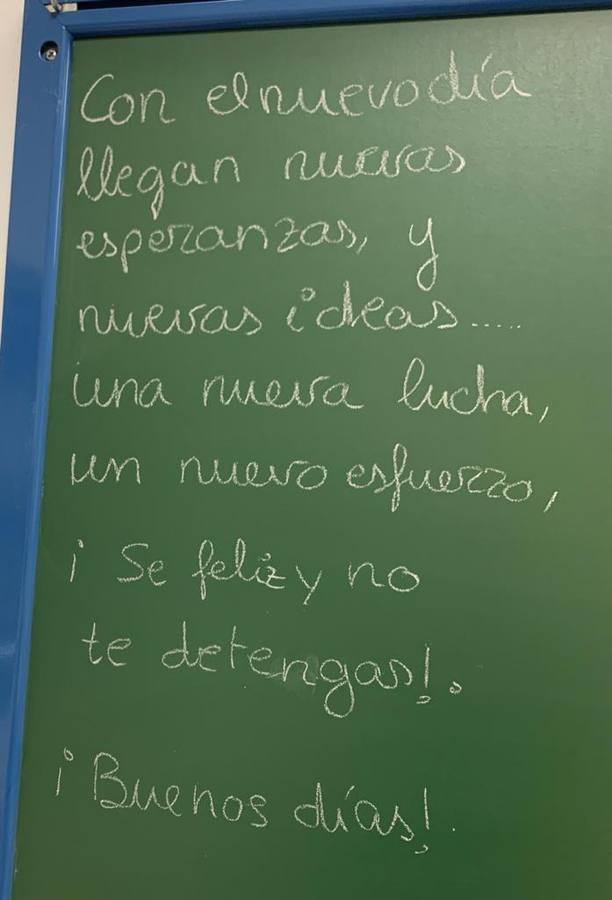 Con el nuevo día
llegan nuevas
esperanzas, y
nuevas ideas.....
una nueva lucha,
un nuevo esfuerzo,
¡ Se feliz y no
te detengas!.
¡Buenos días!.